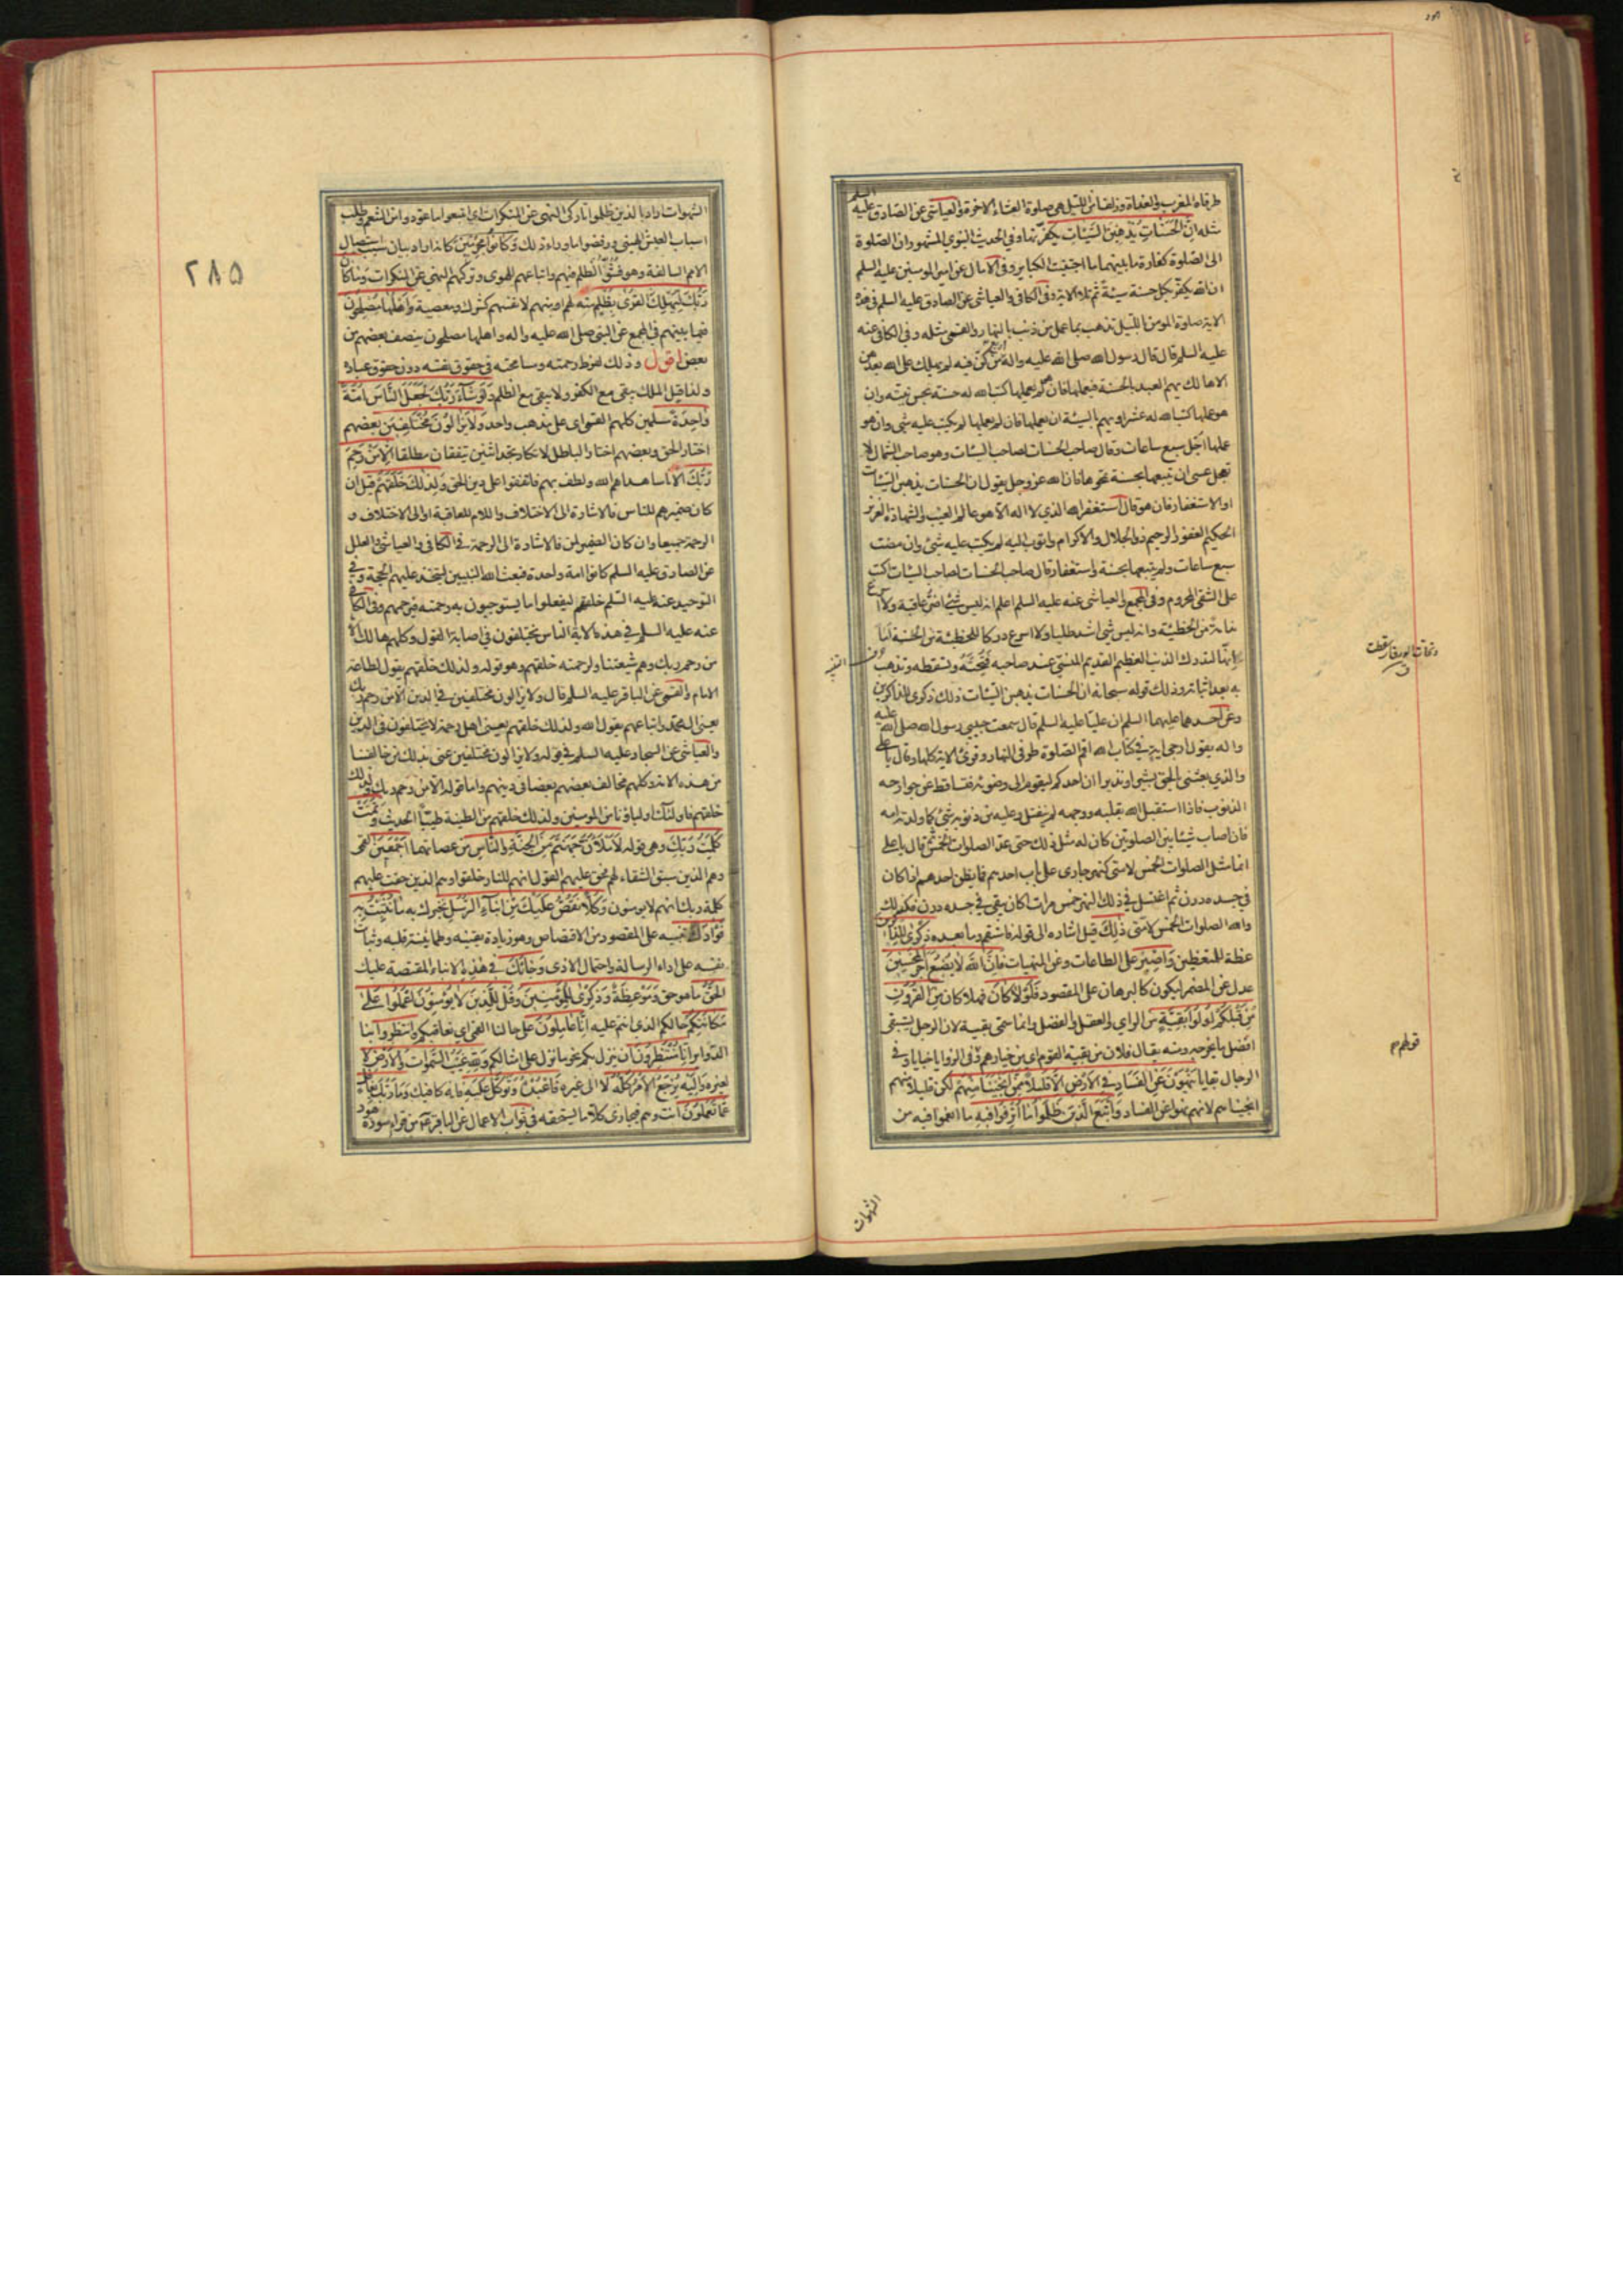 طرفاه المغرب والغداة وزلفا من الليل هي صلوة العشاء الاخرة والعياشي عن الصادق عليه السلم
مثله ان الحسنات يذهبن السيئات يكفرنها وفي الحديث النبوي المشهور ان الصلوة
الى الصلوة كفارة ما بينهما ما اجتنبت الكباير وفي الامالي عن امير المومنين عليه السلم
ان الله يكفر بكل حسنة سيئة ثم تلا الاية وفي الكافي والعياشي عن الصادق عليه السلم في هذه
الاية صلوة المومن بالليل تذهب بما عمل من ذنب بالنهار والقمي مثله وفي الكافي عنه
عليه السلم قال قال رسول الله صلى الله عليه واله اربع من كن فيه لم يهلك على الله بعدهن
الا هالك يهم العبد بالحسنة فيعملها فان هو لم يعملها كتب الله له حسنة بحسن نيته وان
هو عملها كتب الله له عشرا ويهم بالسيئة ان يعملها فان لم يعملها لم يكتب عليه شئ وان هو
عملها اجل سبع ساعات وقال صاحب الحسنات لصاحب السيئات وهو صاحب الشمال لا
تعجل عسى ان يتبعها بحسنة تمحوها فان الله عز وجل يقول ان الحسنات يذهبن السيئات
او الاستغفار فان هو قال استغفر الله الذي لا اله الا هو عالم الغيب والشهادة العزيز
الحكيم الغفور الرحيم ذو الجلال والاكرام واتوب اليه لم يكتب عليه شئ وان مضت
سبع ساعات ولم يتبعها بحسنة واستغفار قال صاحب الحسنات لصاحب السيئات اكتب
على الشقي المحروم وفي المجمع والعياشي عنه عليه السلم اعلم انه ليس شئ اضر عاقبة ولا اسرع
ندامة من الخطيئة وانه ليس شئ اشد طلبا ولا اسرع دركا للخطيئة من الحسنة اما
انها لتدرك الذنب العظيم القديم المنسي عند صاحبه فتحته وتسقطه وتذهب
به بعد اثباته وذلك قوله سبحانه ان الحسنات يذهبن السيئات ذلك ذكرى للذاكرين
وعن احدهما عليهما السلم ان عليا عليه السلم قال سمعت حبيبي رسول الله صلى الله عليه
واله يقول ارجى اية في كتاب الله اقم الصلوة طرفي النهار وقرئ الاية كلها وقال يا علي
والذي بعثني بالحق بشيرا ونذيرا ان احدكم ليقوم الى وضوئه فتساقط عن جوارحه
الذنوب فاذا استقبل الله بقلبه ووجهه لم ينفتل وعليه من ذنوبه شئ كما ولدته امه
فان اصاب شيئا بين الصلوتين كان له مثل ذلك حتى عد الصلوات الخمس ثم قال يا علي
انما مثل الصلوات الخمس لامتي كنهر جاري على باب احدهم فما يظن احدهم اذا كان
في جسده درن ثم اغتسل في ذلك النهر خمس مرات اكان يبقى في جسده درن فكذلك
والله الصلوات الخمس لامتي ذلك قيل اشاره الى قوله فاستقم وما بعده ذكرى للذاكرين
عظة للمتعظين واصبر على الطاعات وعن المنهيات فان الله لا يضيع اجر المحسنين
عدل عن المضمر ليكون كالبرهان على المقصود فلولا كان فهلا كان من القرون
من قبلكم اولوا بقية من الراي والعقل والفضل وانما سمي بقية لان الرجل يستبقي
افضل ما يخرجه ومنه يقال فلان من بقية القوم اي من خيارهم وفي الزوايا خبايا وفي
الرجال بقايا ينهون عن الفساد في الارض الا قليلا ممن انجينا منهم لكن قليلا منهم
انجيناهم لانهم نهوا عن الفساد واتبع الذين ظلموا ما اترفوا فيه ما انعموا فيه من
الشهوات
الشهوات اراد بالذين ظلموا تاركي النهي عن المنكرات اي اتبعوا ما عودوا من التنعم وطلب
اسباب العيش الهنئ ورفضوا ما وراء ذلك وكانوا مجرمين كانه اراد بيان سبب استصال
الامم السالفة وهو فشو الظلم فيهم واتباعهم للهوى وتركهم النهي عن المنكرات وما كان
ربك ليهلك القرى بظلم منه لهم او منهم لانفسهم كشرك ومعصية واهلها مصلحون
فيما بينهم في المجمع عن النبي صلى الله عليه واله واهلها مصلحون ينصف بعضهم من
بعض اقول وذلك لفرط رحمته ومسامحته في حقوق نفسه دون حقوق عباده
ولذا قيل الملك يبقى مع الكفر ولا يبقى مع الظلم ولو شاء ربك لجعل الناس امة
واحدة مسلمين كلهم القمي اي على مذهب واحد ولا يزالون مختلفين بعضهم
اختار الحق وبعضهم اختار الباطل لا تكاد تجد اثنين يتفقان مطلقا الا من رحم
ربك الا ناسا هداهم الله ولطف بهم فاتفقوا على دين الحق ولذلك خلقهم قيل ان
كان ضميرهم للناس فالاشارة الى الاختلاف واللام للعاقبة او الى الاختلاف و
الرحمة جميعا وان كان الضمير لمن فالاشارة الى الرحمة في الكافي والعياشي والعلل
عن الصادق عليه السلم كانوا امة واحدة فبعث الله النبيين ليتخذ عليهم الحجة وفي
التوحيد عنه عليه السلم خلقهم ليفعلوا ما يستوجبون به رحمته فيرحمهم وفي الكافي
عنه عليه السلم في هذه الاية الناس يختلفون في اصابة القول وكلهم هالك الا
من رحم ربك وهم شيعتنا ولرحمته خلقهم وهو قوله ولذلك خلقهم يقول لطاعة
الامام والقمي عن الباقر عليه السلم قال ولا يزالون مختلفين في الدين الا من رحم ربك
يعني ال محمد واتباعهم يقول الله ولذلك خلقهم يعني اهل رحمة لا يختلفون في الدين
والعياشي عن السجاد عليه السلم في قوله ولا يزالون مختلفين عنى بذلك من خالفنا
من هذه الامة وكلهم مخالف بعضهم بعضا في دينهم واما قوله الا من رحم ربك ولذلك
خلقهم فاولئك اولياؤنا من المومنين ولذلك خلقهم من الطينة طيبا الحديث وتمت
كلمة ربك وهي قوله لاملان جهنم من الجنة والناس من عصاتهما اجمعين القمي
وهم الذين سبق الشقاء لهم فحق عليهم القول انهم للنار خلقوا وهم الذين حقت عليهم
كلمة ربك انهم لا يومنون وكلا نقص عليك من انباء الرسل نخبرك به ما نثبت به
فؤادك تنبيه على المقصود من الاقتصاص وهو زيادة يقينه وطمانينة قلبه وثبات
نفسه على اداء الرسالة واحتمال الاذى وجائك في هذه الانباء المقتصة عليك
الحق ما هو حق وموعظة وذكرى للمؤمنين وقل للذين لا يؤمنون اعملوا على
مكانتكم حالكم الذي انتم عليه انا عاملون على حالنا القمي اي نعاقبكم وانتظروا بنا
الدواير انا منتظرون ان ينزل بكم نحو ما نزل على امثالكم ولله غيب السموات والارض لا
لغيره واليه يرجع الامر كله لا الى غيره فاعبده وتوكل عليه فانه كافيك وما ربك بغافل
عما تعملون انت وهم فيجازي كلا ما يستحقه في ثواب الاعمال عن الباقر من قرا سورة هود
٢٨٥